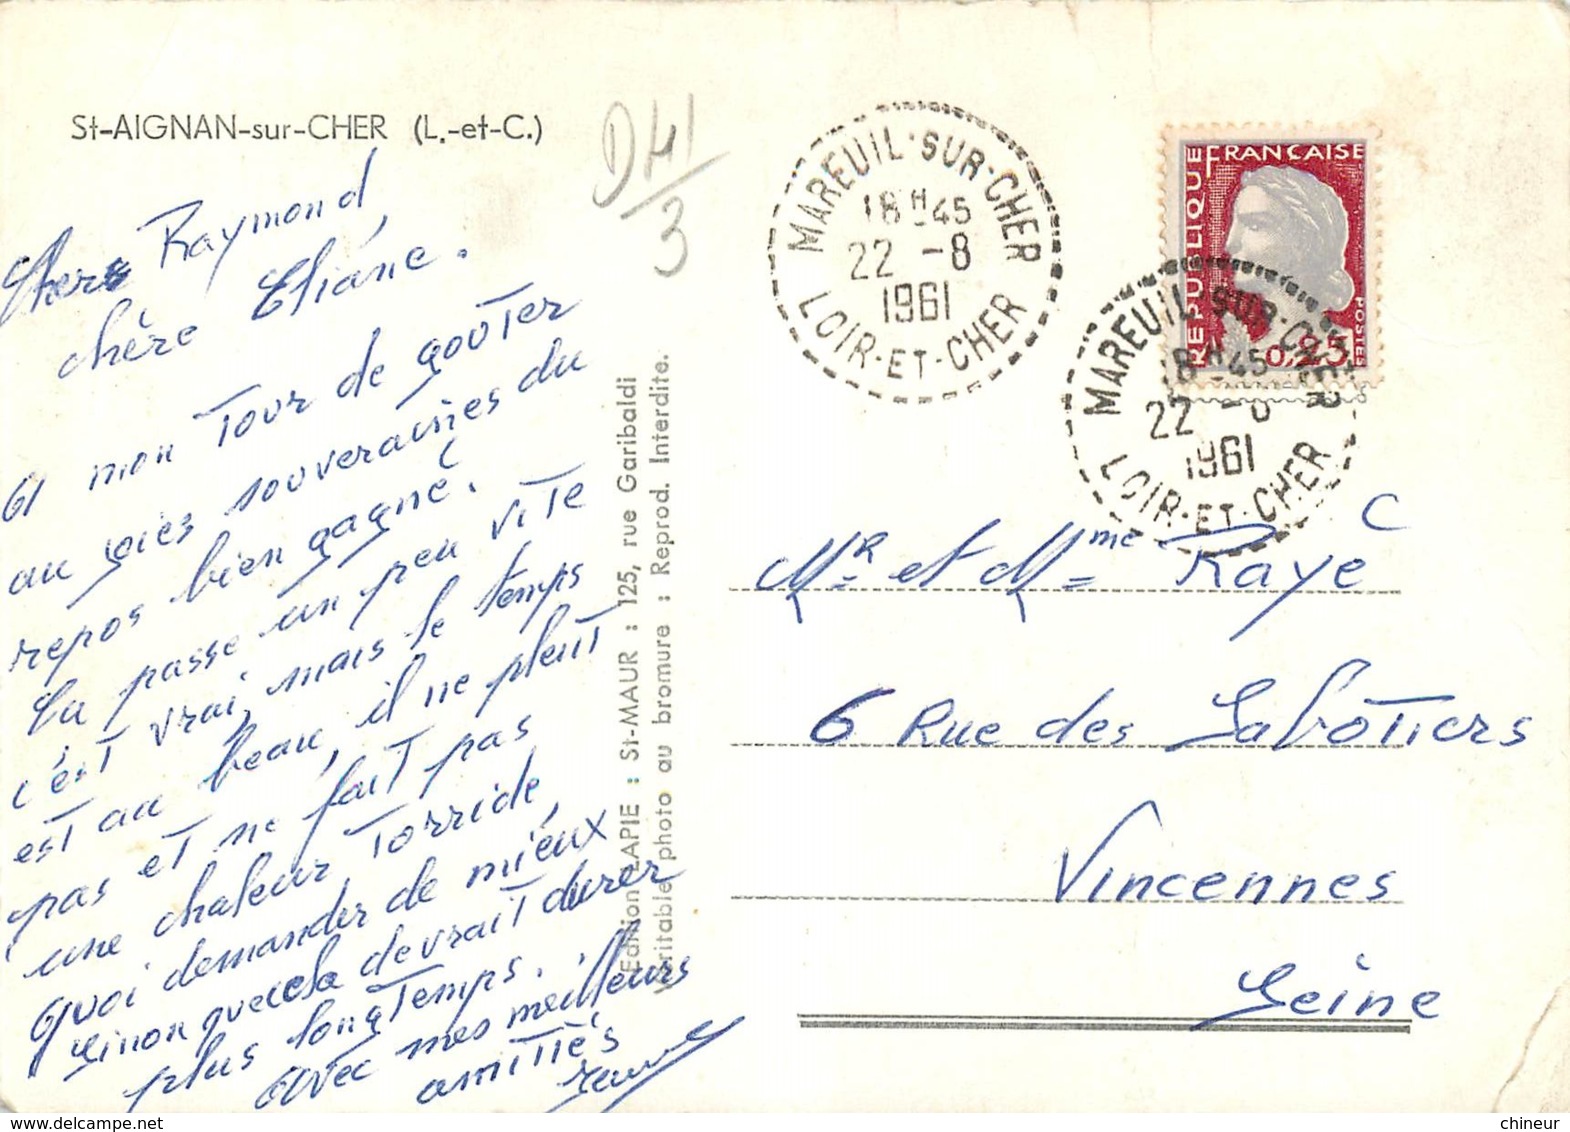 St-AIGNAN-sur-CHER (L.-et-C.)
D41/3
Cher Raymond
chère Eliane.
A mon Tour de gouter
au joies souveraines du
repos bien gagné.
Ça passe un peu vite
c'est vrai, mais le temps
est au beau, il ne pleut
pas et ne fait pas
une chaleur Torride,
Quoi demander de mieux
sinon que cela devrait durer
plus longTemps..
avec mes meilleurs
amitiés
Edition LAPIE : St-MAUR : 125, rue Garibaldi
Véritable photo au bromure : Reprod. Interdite.
MAREUIL-SUR-CHER
18H45
22 -8
1961
LOIR-ET-CHER
REPUBLIQUE FRANÇAISE
POSTES
0,25
MAREUIL-SUR-CHER
18H45
22 -8
1961
LOIR-ET-CHER
C
Mr et Mme Raye
6 Rue des Sabotiers
Vincennes
Seine
chineur